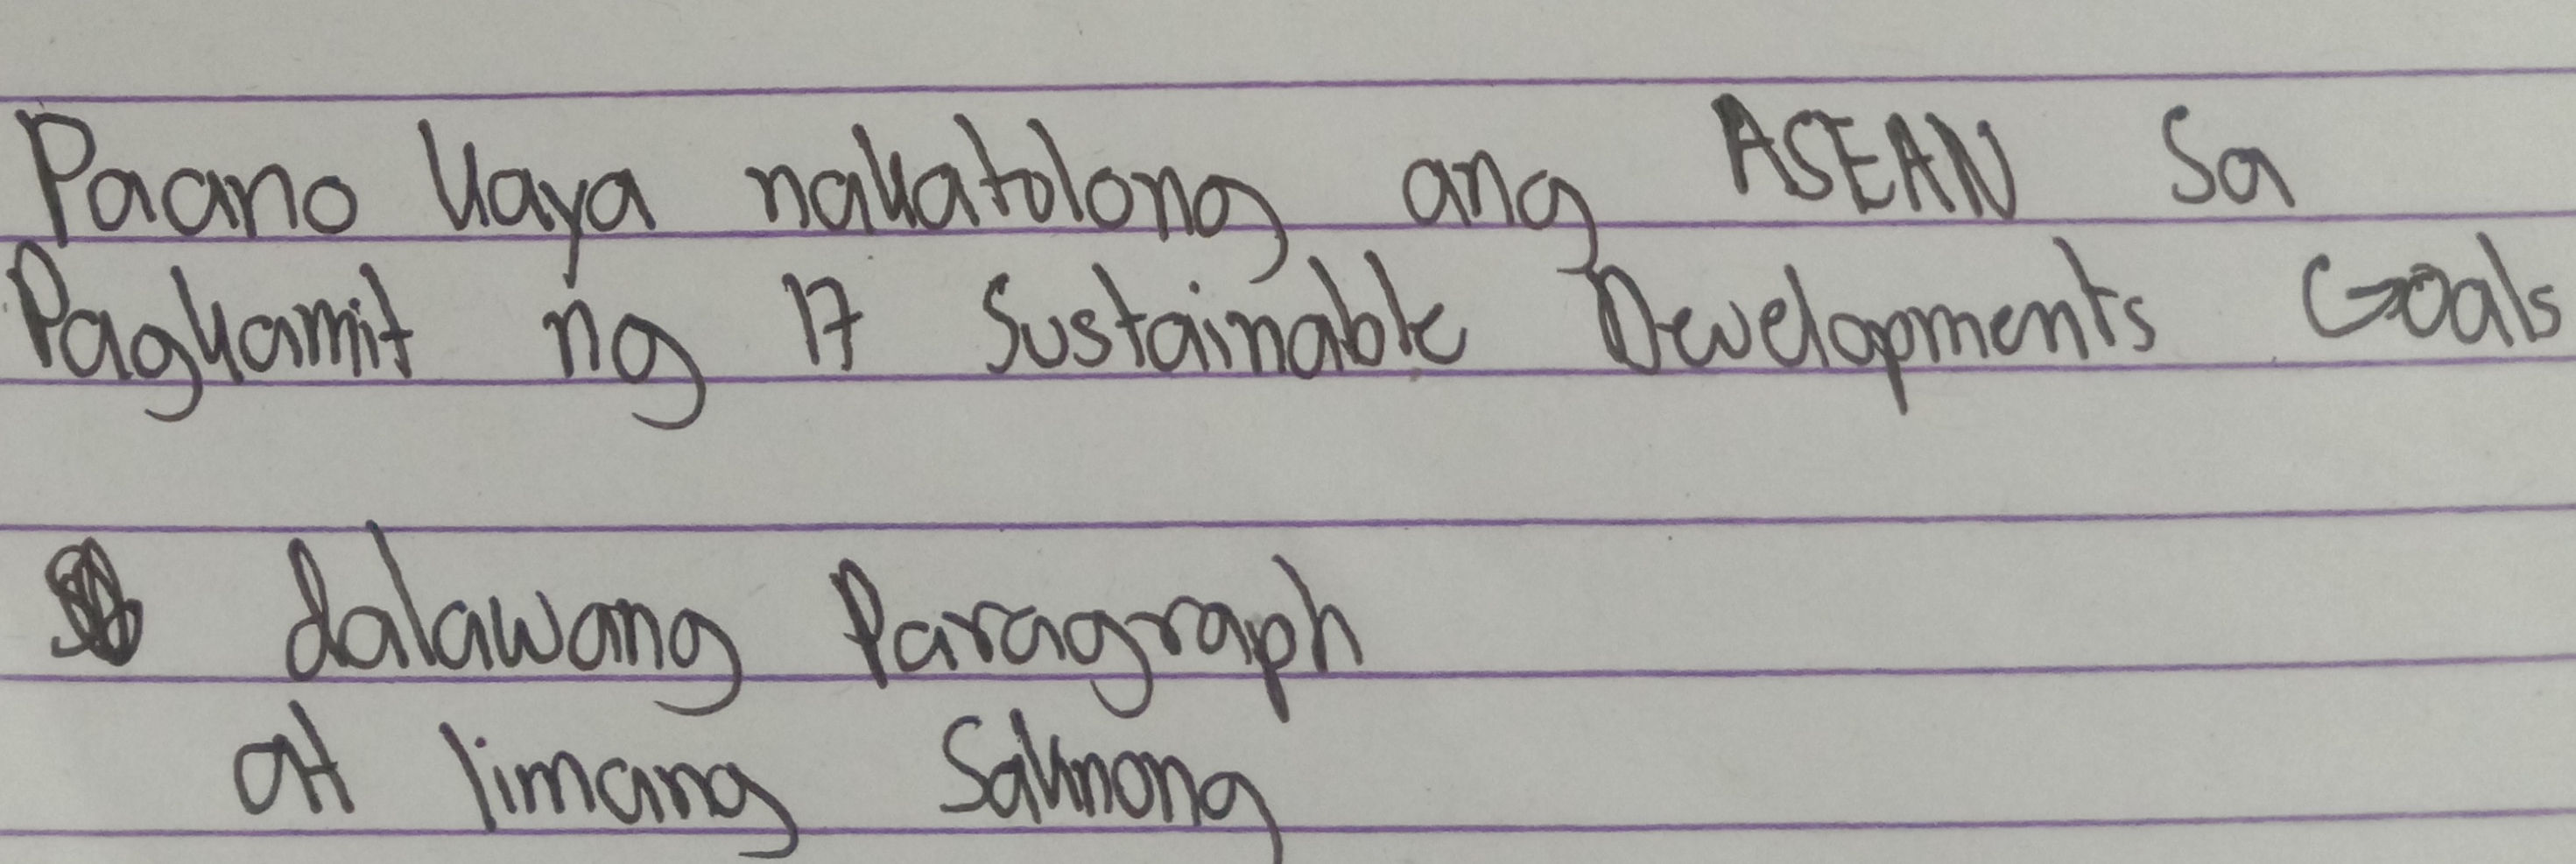 Paano kaya nakatolong ang ASEAN sa
Pagkamit ng 17 Sustainable Developments Goals
dalawang Paragraph
at limang Saknong